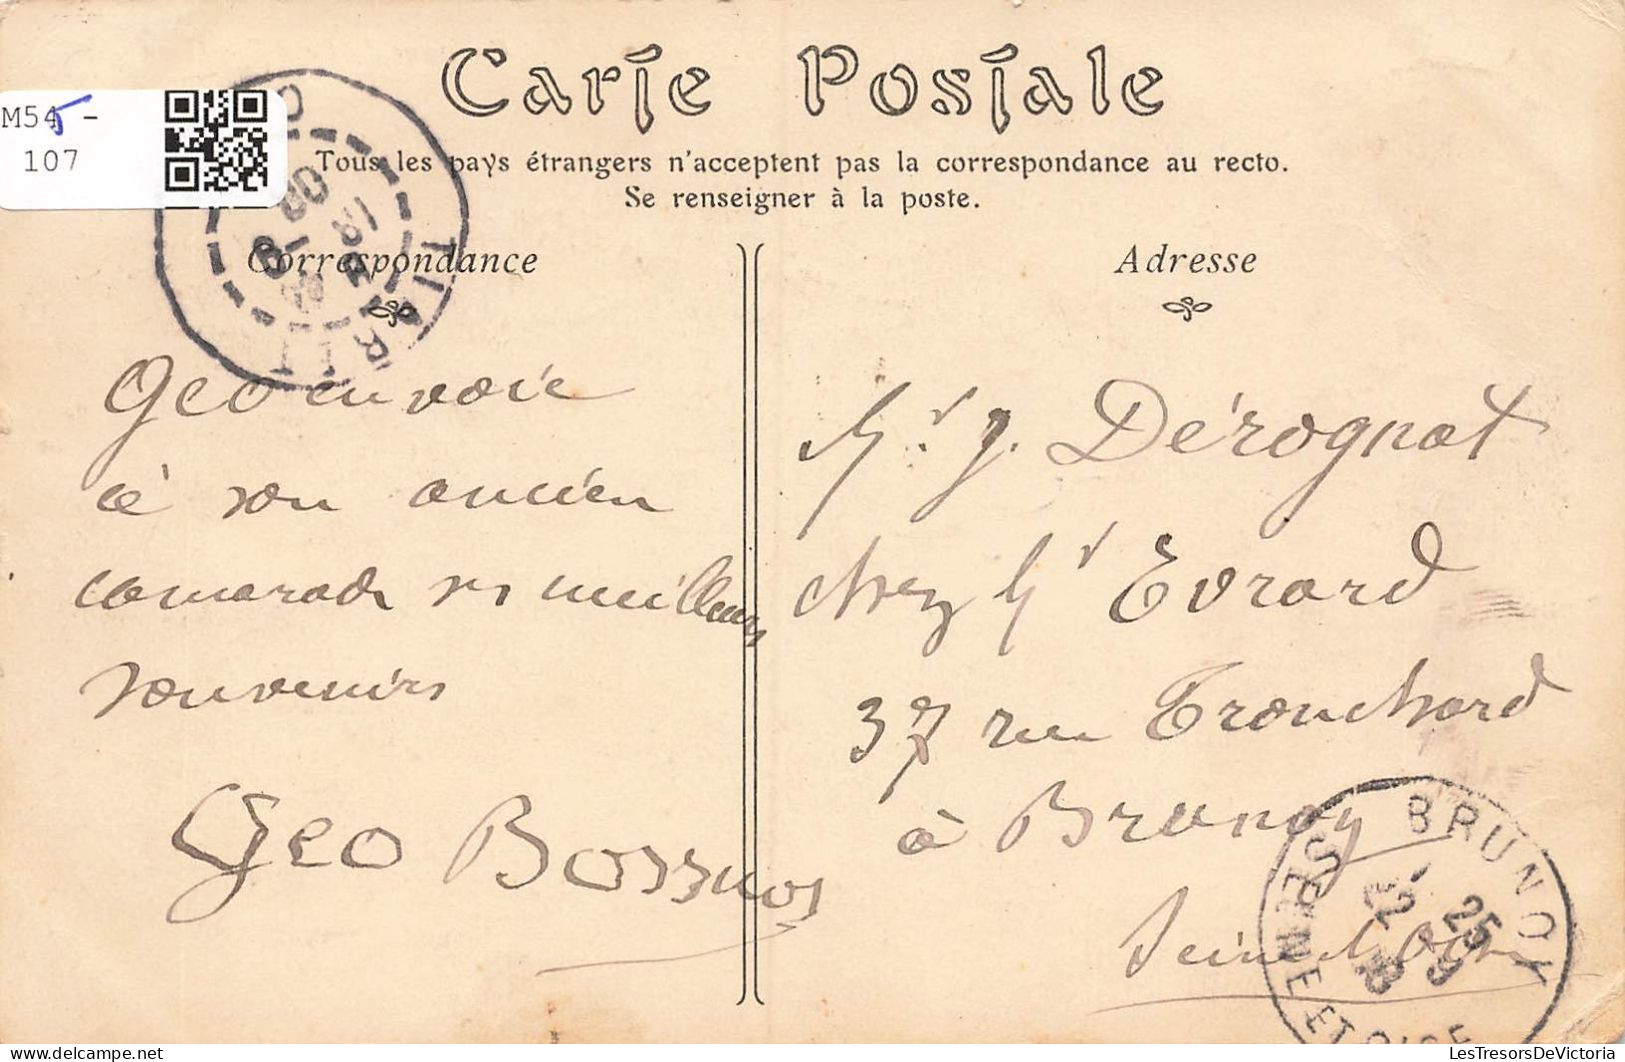 Carte Postale
M545 -
107
Tous les pays étrangers n'acceptent pas la correspondance au recto.
Se renseigner à la poste.
Correspondance
Geo envoie
à son ancien
camarade ses meilleurs
souvenirs
Geo
Adresse
Mr. J. Dérognat
chez Mr Evrard
37 rue Tronchard
à Brunoy
Seine et Oise
BRUNOY
SEINE ET OISE
22 25
9
LesTresorsDeVictoria